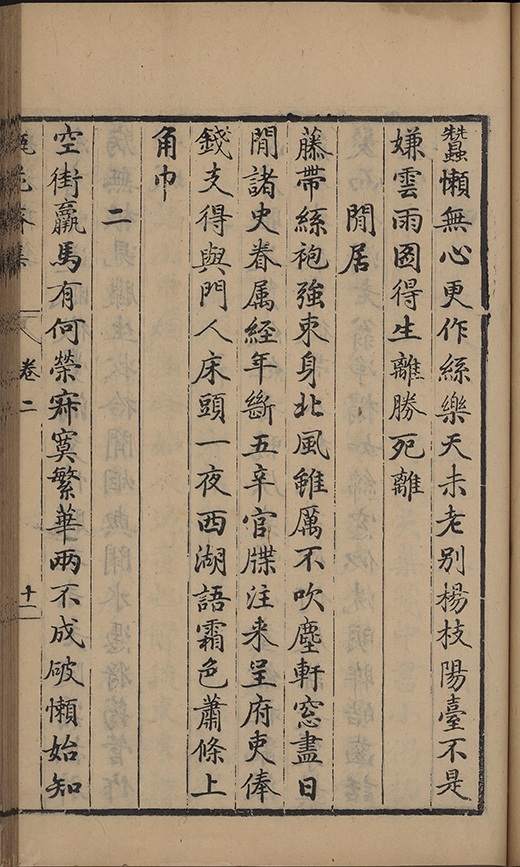 蠶懶無心更作絲樂天未老別楊枝陽臺不是
嫌雲雨圖得生離勝死離
閒居
藤帶絲袍強束身北風雖厲不吹塵軒窓盡日
閒諸史眷属経年斷五辛官牒注来呈府吏俸
錢支得與門人床頭一夜西湖語霜色蕭條上
角巾
二
空街羸馬有何榮寂寞繁華兩不成破懶始知
卷二
十一